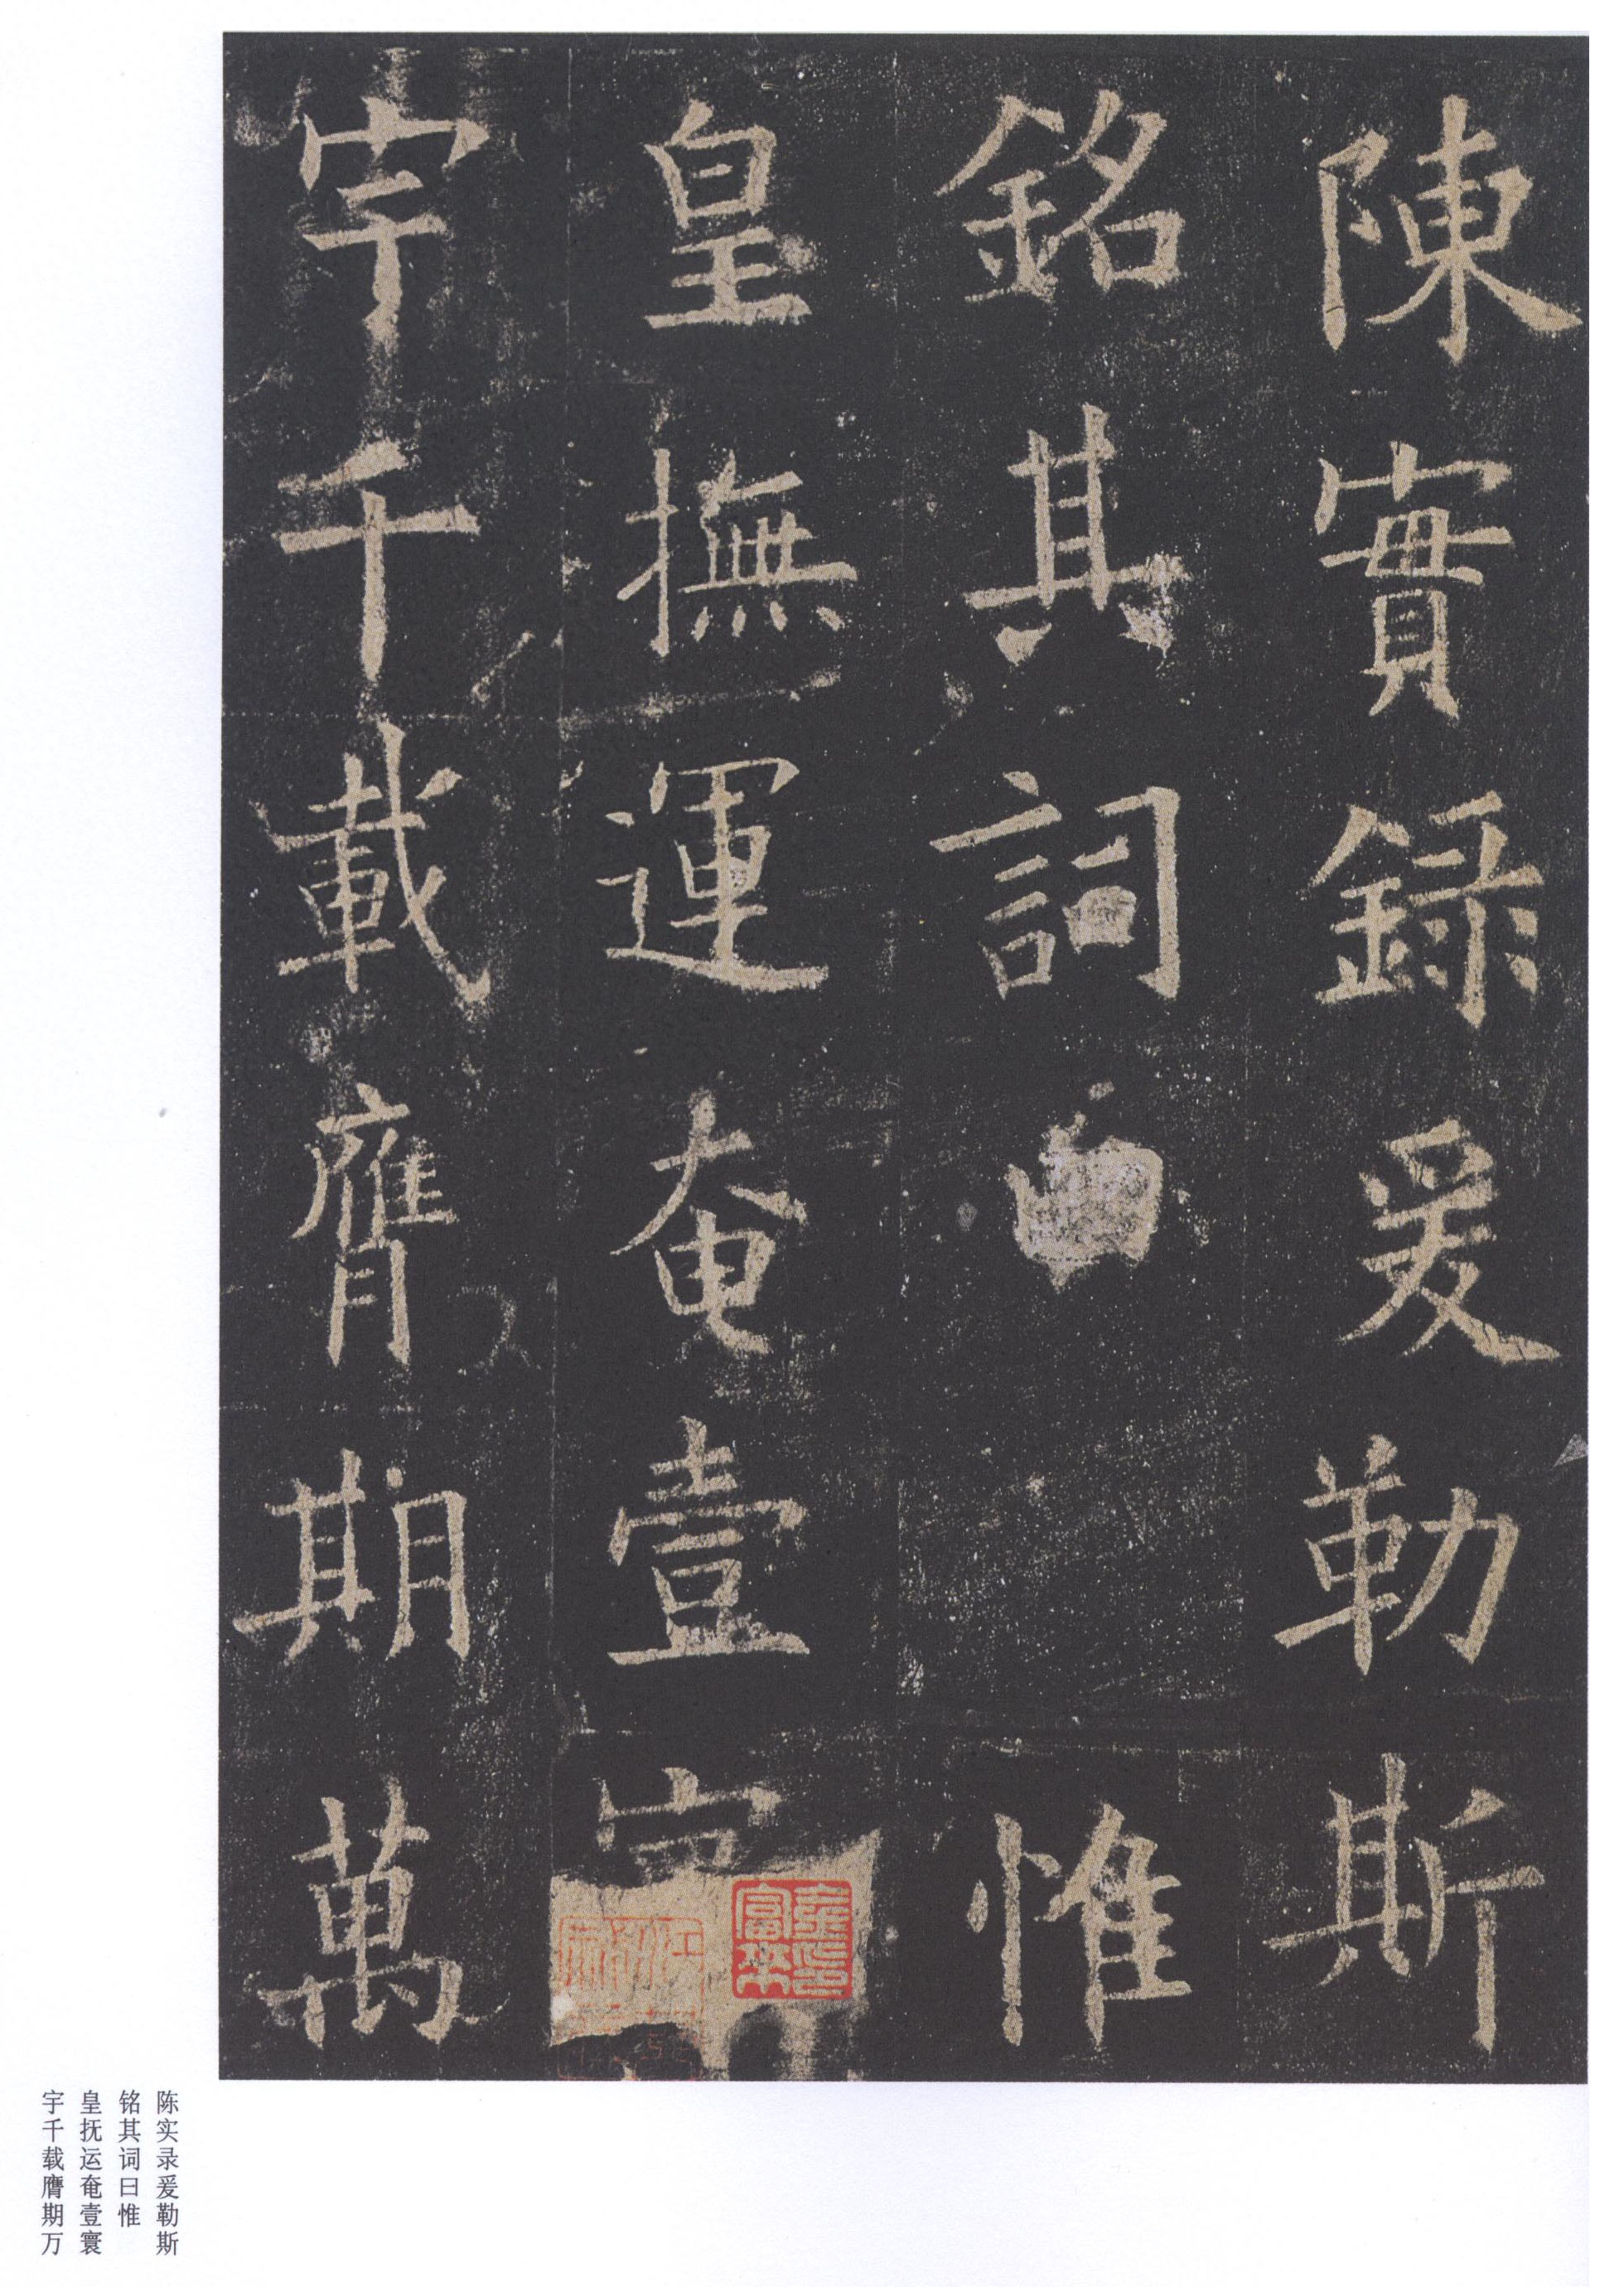 陳實録爰勒斯
銘其詞曰惟
皇撫運奄壹
宇千載膺期萬
陈实录爰勒斯
铭其词曰惟
皇抚运奄壹寰
宇千载膺期万